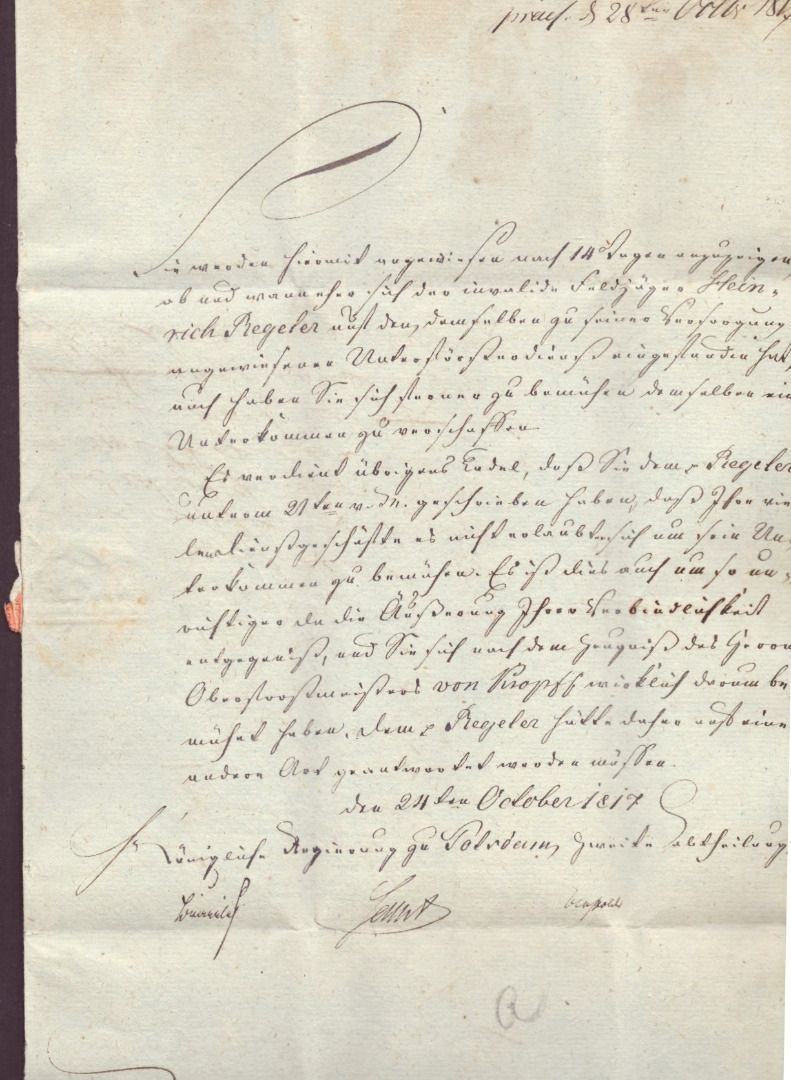 praes. d 28ten Octbr 1817
Sie werden hiermit angewiesen nach 14 Tagen anzuzeigen
ob und wann eher sich der invalide Feldjäger Hein-
rich Regeler auf den, demselben zu seiner Versorgung
angewiesenen Unterförsterdienst eingefunden hat,
auch haben Sie sich ferner zu bemühen demselben ein
Unterkommen zu verschaffen.
Es verdient übrigens Tadel, daß Sie dem p Regeler
unterm 21ten v. M. geschrieben haben, daß Ihre vie-
len Dienstgeschäfte es nicht erlaubten sich um sein Un-
terkommen zu bemühen. Es ist dies auch um so un-
richtiger da die Äußerung Ihrer Verbindlichkeit
entgegen ist, und Sie sich nach dem Zeugniß des Herrn
Oberforstmeisters von Kropff wirklich darum be
mühet haben. Dem p Regeler hätte daher auf eine
andere Art geantwortet werden müssen.
den 24ten October 1817
Königliche Regierung zu Potsdam, zweite Abtheilung